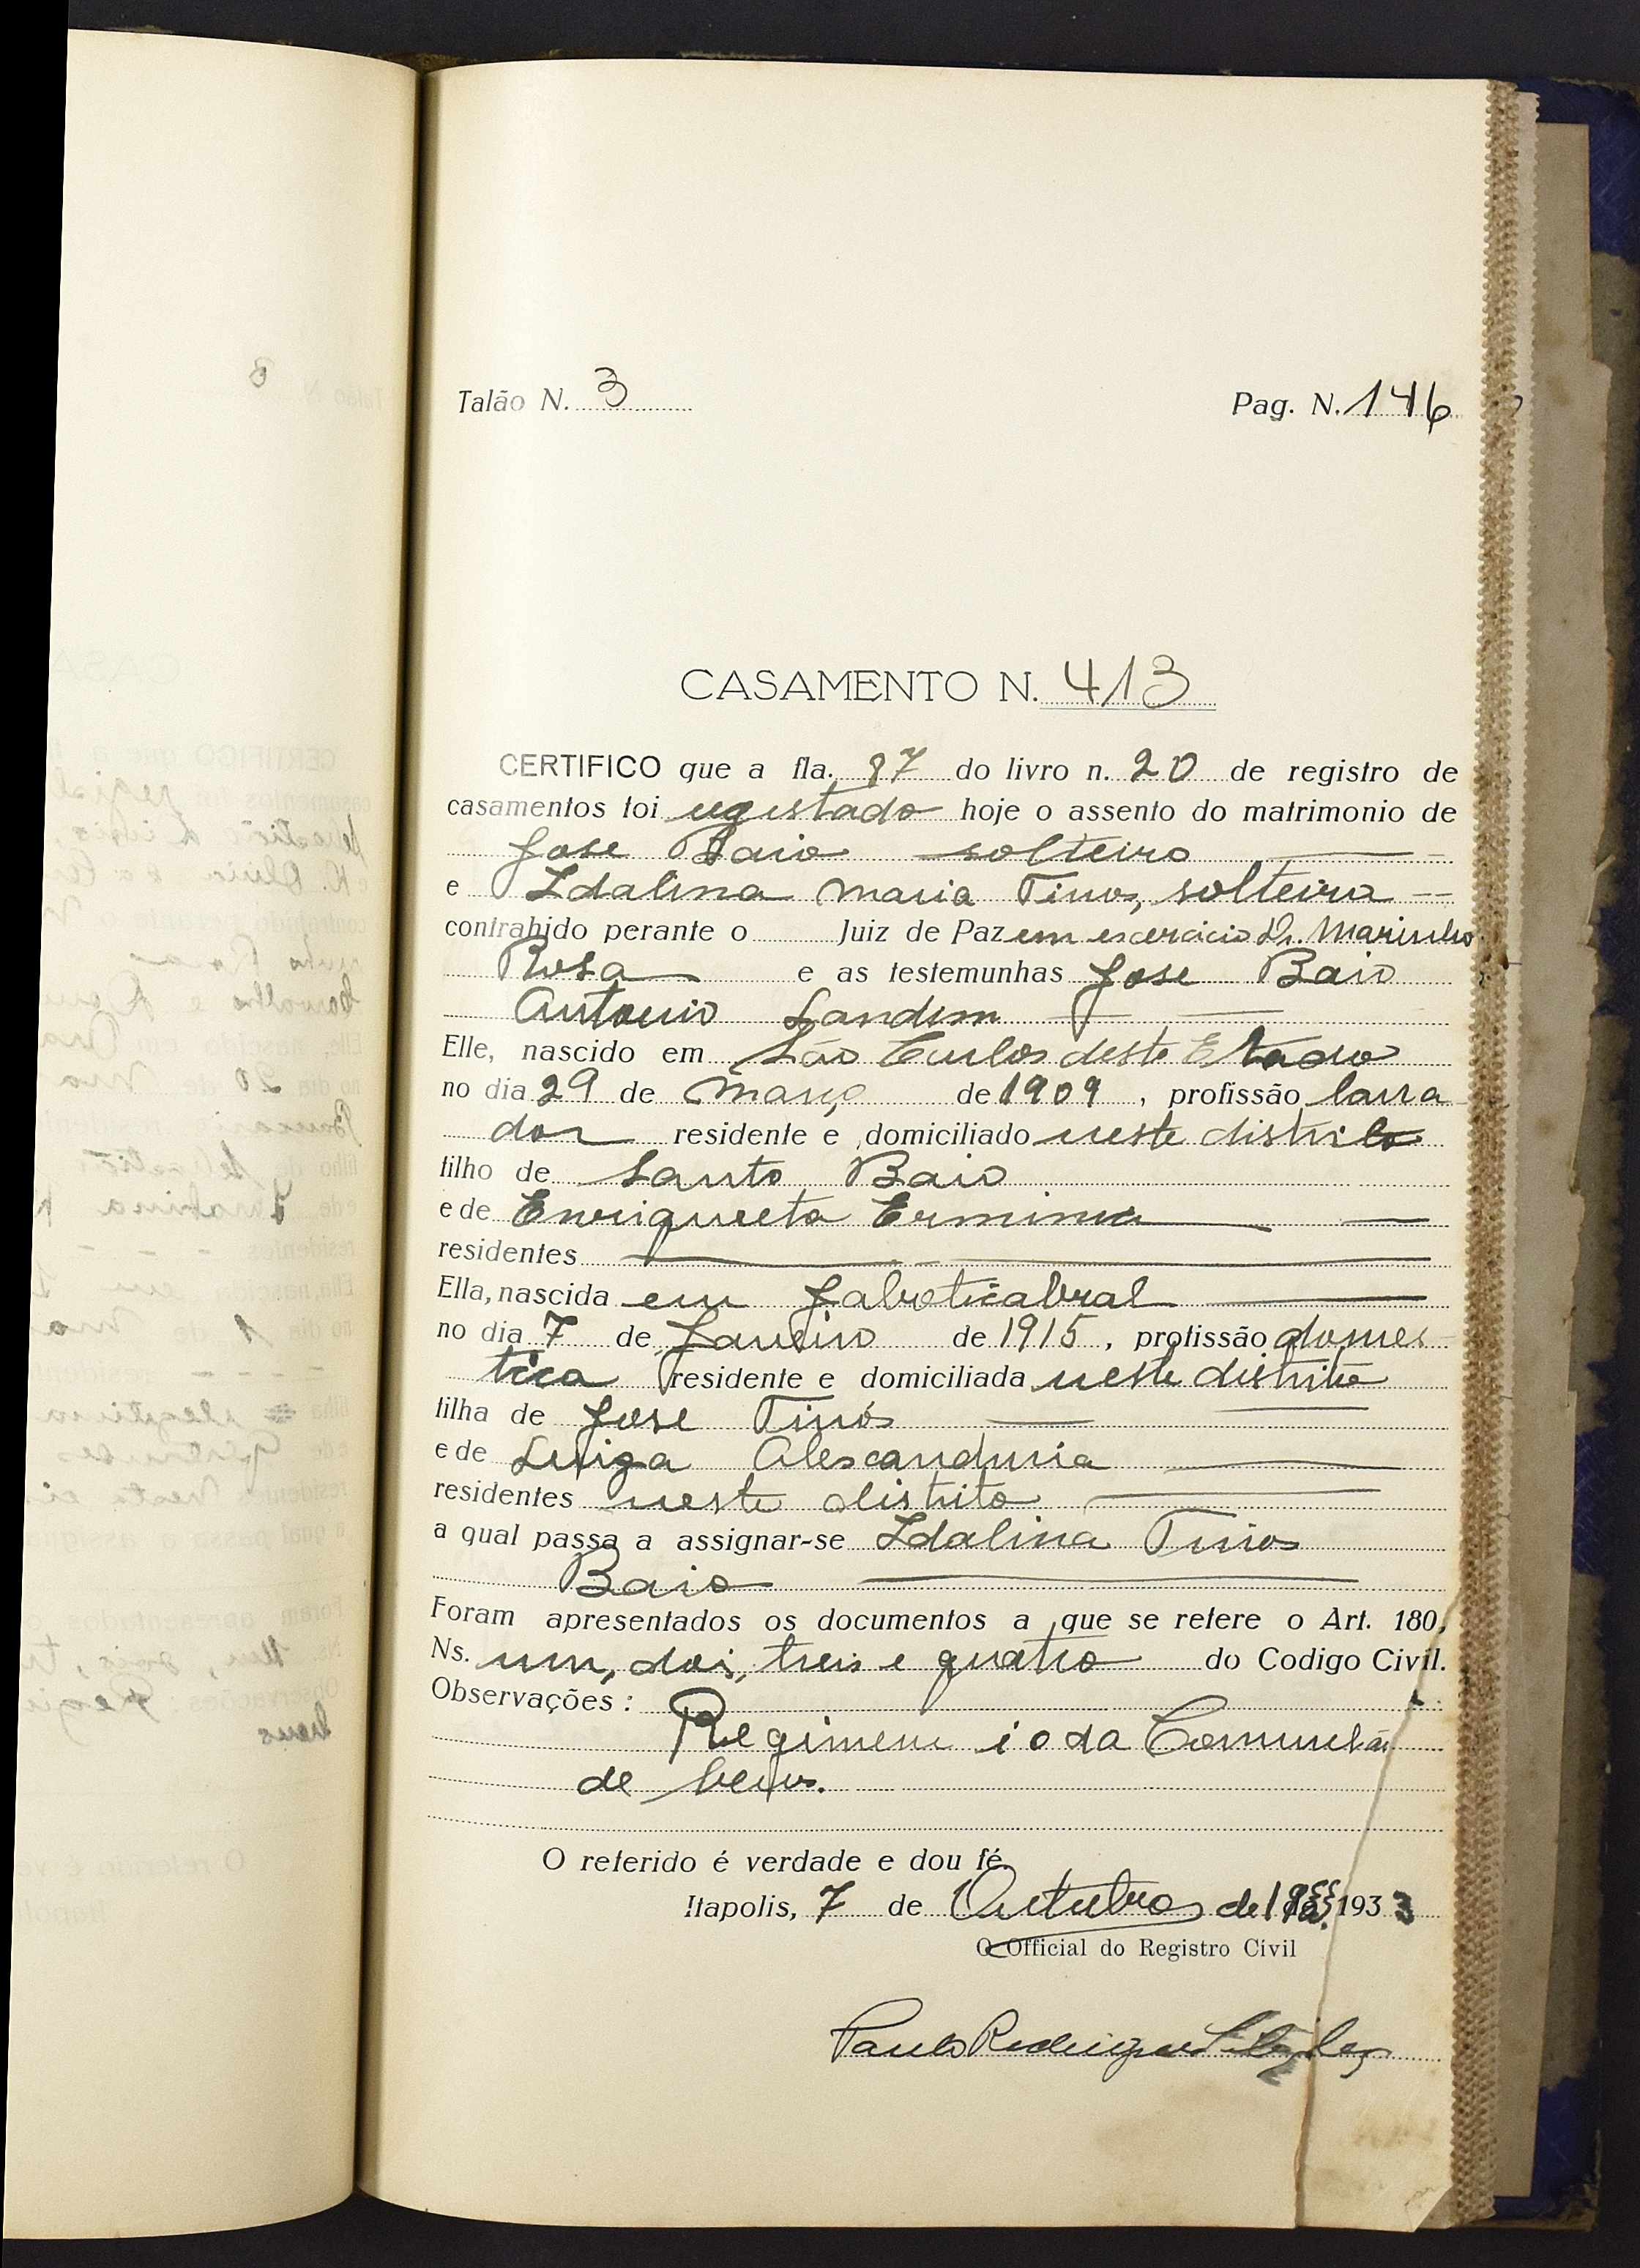 Talão N. 3 Pag. N. 146
CASAMENTO N. 413
CERTIFICO que a fla. 87 do livro n. 20 de registro de
casamentos foi registado hoje o assento do matrimonio de
Jose Baio solteiro
e Idalina Maria Tinos, solteira
contrahido perante o Juiz de Paz em escercicio Dr. Marinho
Rosa e as testemunhas Jose Baio
Antonio Landim
Elle, nascido em São Carlos deste Estado
no dia 29 de Março de 1909, profissão lavra
dor residente e domiciliado neste distrito
filho de Santo Baio
e de Enriqueeta Erminia
residentes
Ella, nascida em Jaboticabral
no dia 7 de Janeiro de 1915, profissão domes-
tica residente e domiciliada neste distrito
filha de Jose Tinós
e de Luiza Alescandrina
residentes neste distrito
a qual passa a assignar-se Idalina Tinos
Baio
Foram apresentados os documentos a que se refere o Art. 180,
Ns. um, dois, treis e quatro do Codigo Civil.
Observações:
Regimem i o da Comunhão
de bens.
O referido é verdade e dou fé.
Itapolis, 7 de Outubro de 1933
O Official do Registro Civil
Paulo Rodrigues